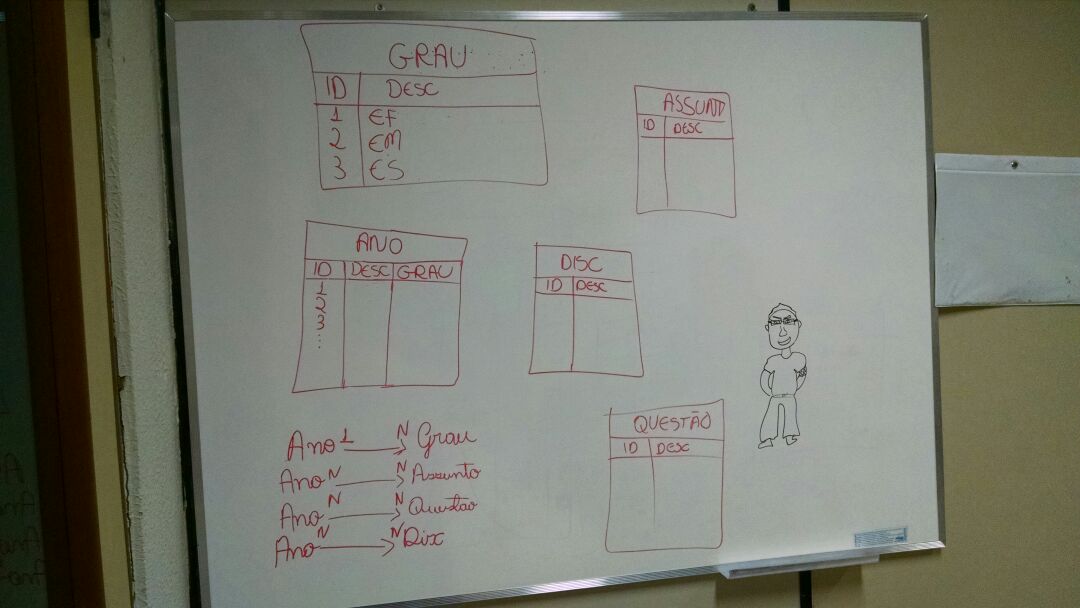 GRAU
ID DESC
1 EF
2 EM
3 ES
ASSUNT
ID DESC
ANO
ID DESC GRAU
1
2
3
...
DISC
ID DESC
QUESTÃO
ID DESC
Ano 1 N Grau
Ano N N Assunto
Ano N N Questão
Ano N N Dix